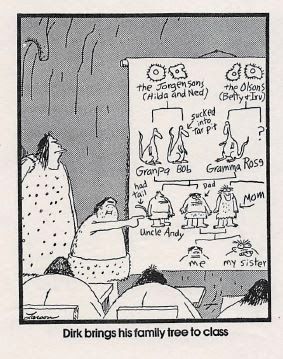 the Jorgensons
(Hilda and Ned)
the Olsons
(Betty & Irv)
sucked
into
tar pit
?
Granpa
Bob
Gramma
Rose
had
tail
Dad
Mom
Uncle Andy
me
my sister
Larson
Dirk brings his family tree to class